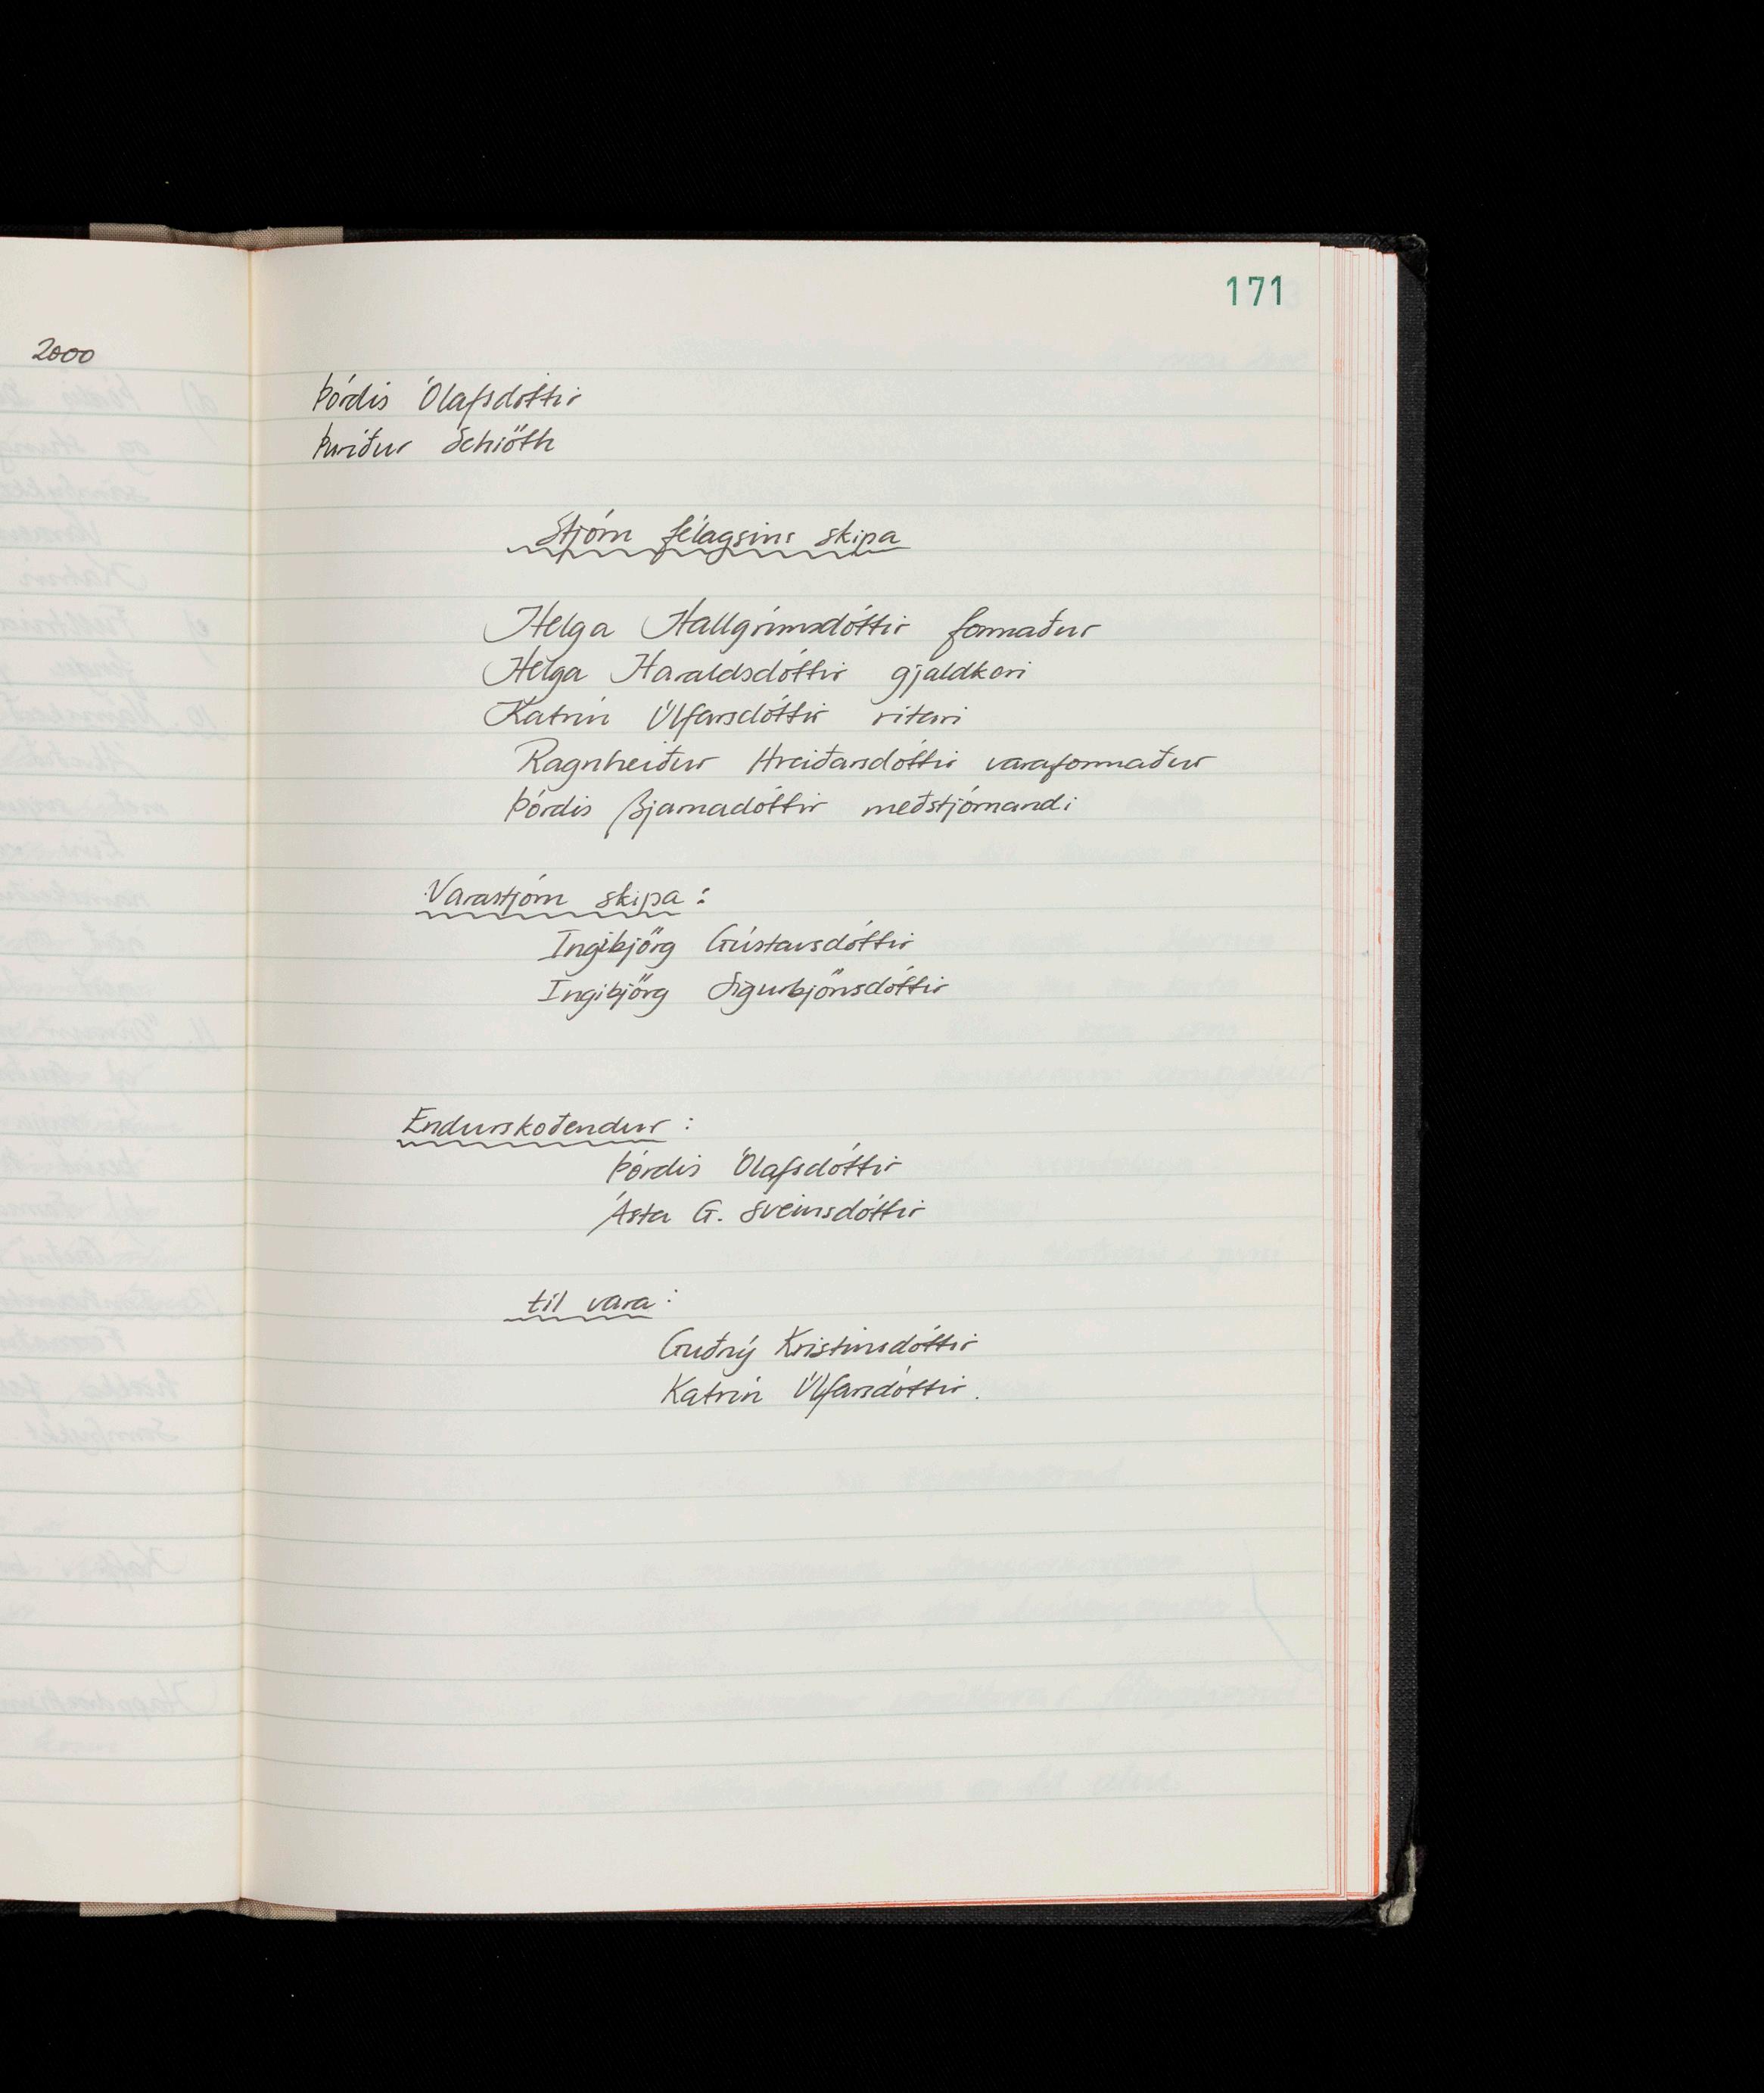 171
2000
Þórdís Ólafsdóttir
Þuríður Schiöth
Stjórn félagsins skipa
Helga Hallgrímsdóttir formaður
Helga Haraldsdóttir gjaldkeri
Katrín Úlfarsdóttir ritari
Ragnheiður Hreiðarsdóttir varaformaður
Þórdís Bjarnadóttir meðstjórnandi
Varastjórn skipa:
Ingibjörg Gústavsdóttir
Ingibjörg Sigurbjörnsdóttir
Endurskoðendur:
Þórdís Ólafsdóttir
Ásta G. Sveinsdóttir
til vara:
Guðný Kristinsdóttir
Katrín Úlfarsdóttir.